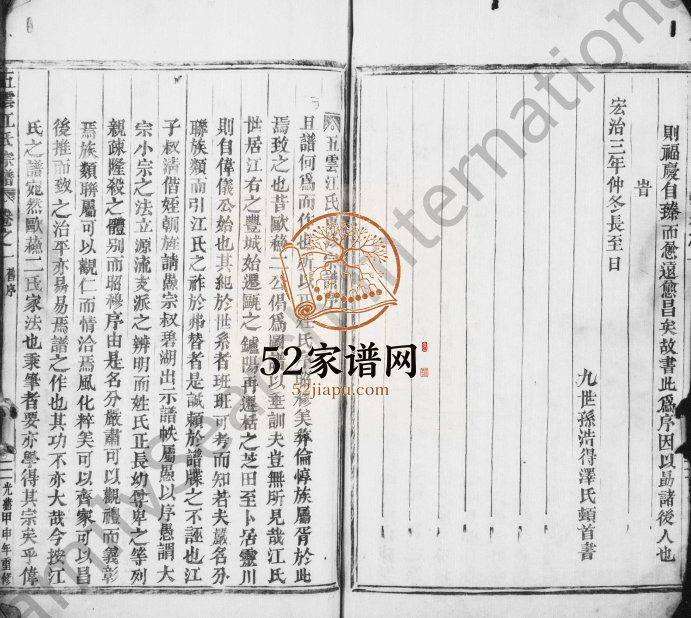 則福慶自臻而愈遠愈昌矣故書此爲序因以勗諸後人也
旹
宏治三年仲冬長至日
九世孫浩得澤氏頓首書
五雲江氏宗譜
且譜何爲而作也所以
美彜倫惇族屬胥於此
焉致之也昔歐蘇二公倡爲
以垂訓夫豈無所見哉江氏
世居江右之豐城始遷甌之
再遷栝之芝田至卜居靈川
則自偉儀公始也其紀於世系者班班可考而知若夫嚴名分
聯族類而引江氏之祚於弗替者是誠賴於譜牒之不誣也江
子叔清偕姪朝旌請愚宗叔碧湖出示譜帙屬愚以序愚謂大
宗小宗之法立源流支派之辨明而姓氏正長幼尊卑之等列
親疎隆殺之體别而昭穆序由是名分嚴肅可以觀禮而義彰
焉族類聯屬可以觀仁而情洽焉風化粹美可以齊家可以昌
後推而致之治平亦易易焉譜之作也其功不亦大哉今按江
氏之譜宛然歐蘇二氏家法也秉筆者要亦學得其宗矣乎偉
五雲江氏宗譜
卷之一
舊序
光緒甲申年重修
52家谱网
52jiapu.com